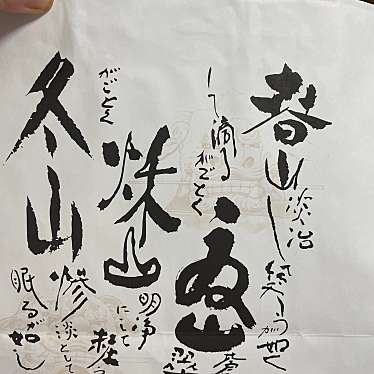 春山
淡冶
笑うが如く
夏山
蒼
して滴る
がごとく
秋山
明浄
にして
粧う
がごとく
冬山
惨淡として
眠るが如し